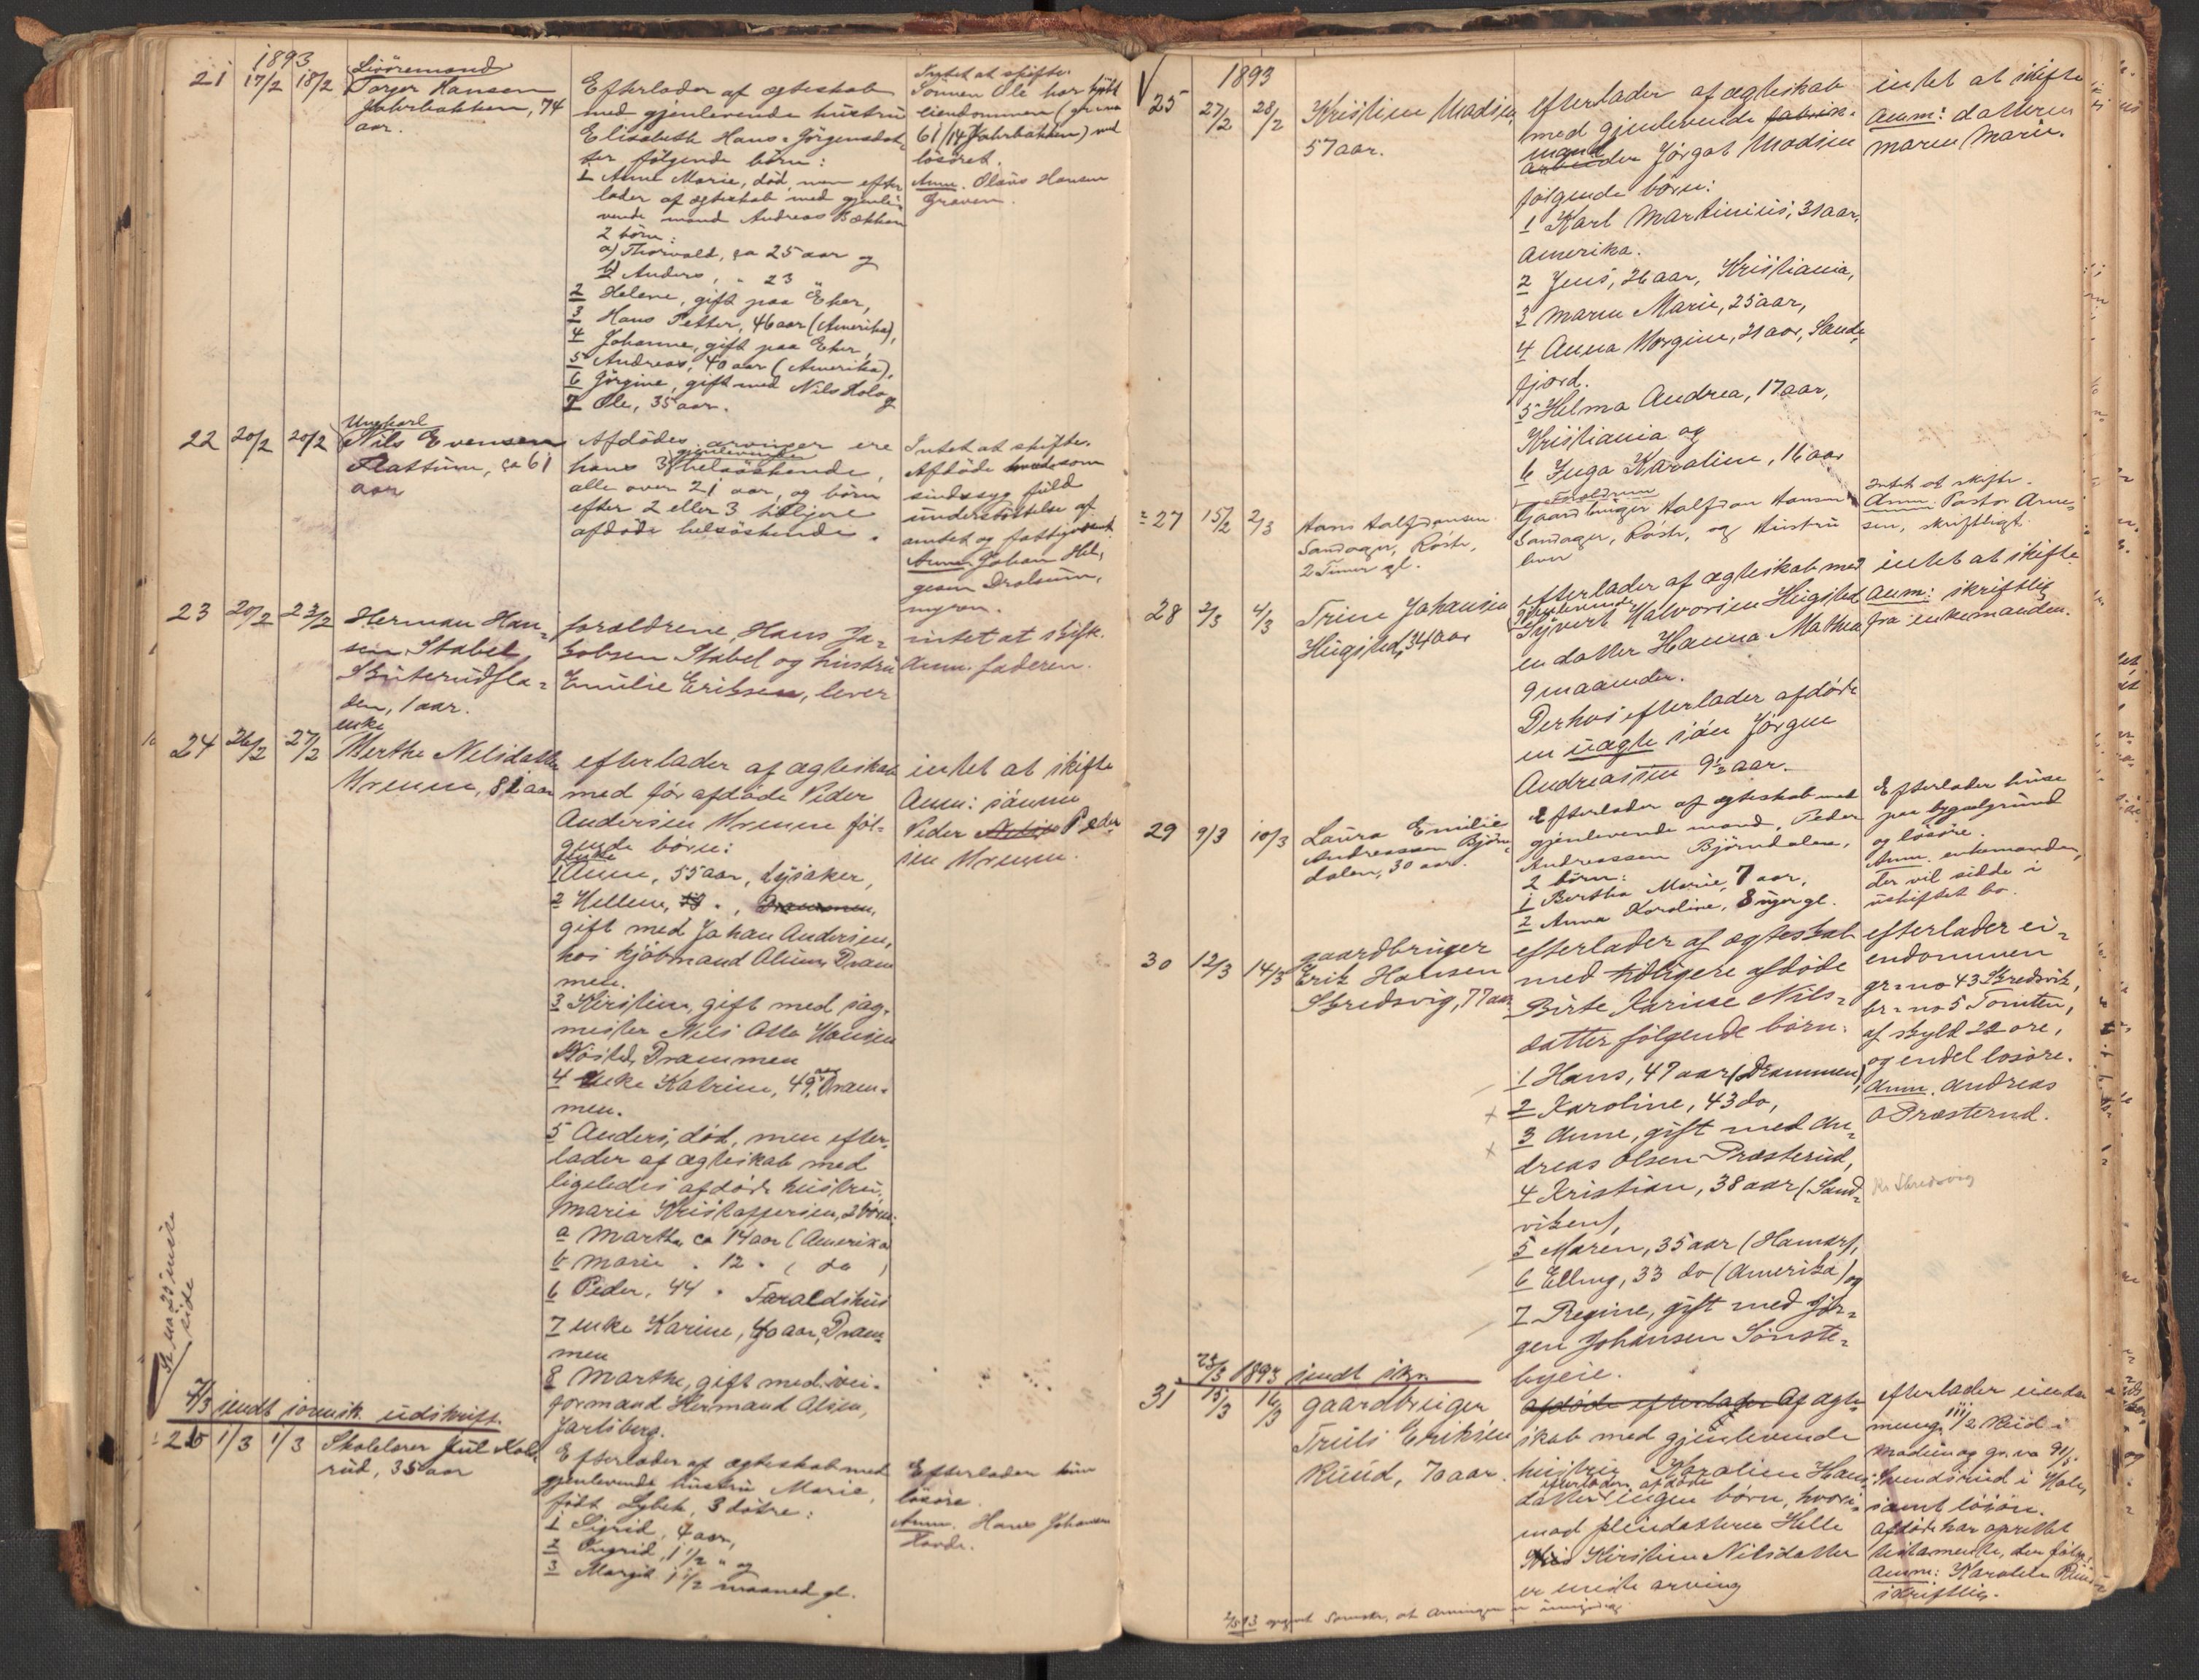 1893
21 17/2 18/2 Livöremand
Torger Hansen
Jahrbakken, 74
aar.
Efterlader af ægteskab
med gjenlevende hustru
Elisabeth Hans-Jörgensdat-
ter følgende børn:
1 Anne Marie, död, men efter
lader af ægteskab med gjenle-
vende mand Andreas Bakken
2 börn:
a) Thorvald, ca 25 aar og
b) Anders, " 23 "
2 Helene, gift paa Eker,
3 Hans Petter, 46 aar (Amerika),
4 Johanne, gift paa Eker,
5 Andreas, 40 aar (Amerika),
6 Jörgine, gift med Nils Holo og
7 Ole, 35 aar.
Intet at skifte.
Sönnen Ole har kjöbt
eiendommen (gr. no
61/14 Jahrbakken) med
lösöret.
Anm. Olaus Hansen
Graven.
22 20/2 20/2 Ungkarl
Nils Evensen
Flattum, ca 61
aar
Afdödes arvinger ere
hans 3 gjenlevende helsöskende,
alle over 21 aar, og börn
efter 2 eller 3 tidligere
afdöde helsöskende.
Intet at skifte.
Afdöde havde som
sindssyg fuld
understöttelse af
amtet og fattigvæsenet
Anm. Johan Hel-
gesen Dralsum-
myren.
23 20/2 23/2 Herman Han-
sen Stabel
Skuterudfla-
den, 1 aar.
forældrene, Hans Ja-
kobsen Stabel og hustru
Emilie Eriksen, lever
intet at skift.
Anm. faderen.
24 26/2 27/2 enke
Berthe Nilsdatter
Vrenne, 81 aar
efterlader af ægteskab
med før afdøde Peder
Andersen Vrenne føl-
gende børn:
enke
1 Anne, 55 aar, Lysaker,
2 Hellene, Drammen,
gift med Johan Andersen,
hos kjøbmand Olsen, Dram
men.
3 Kirstine, gift med sag-
mester Nils Otto Hansen
Drammen
4 enke Katrine, 49 aar, Dram-
men.
5 Anders, død, men efter-
lader af ægteskab med
ligeledes afdøde hustru,
Marie Kristoffersen, 2 børn:
a Martha ca 14 aar (Amerika)
b Marie " 12 " ( do )
6 Peder, 44 " Taraldshus
7 enke Karine, 40 aar, Dram-
men
8 Marthe, gift med vei-
formand Hermand Olsen,
Jarlsberg.
intet at skifte
Anm: sønnen
Peder Nilsen Peder-
sen Vrenne.
Se no 25 næste
side
7/3 sendt sorensk. udskrift.
26 1/3 1/3 Skolelærer Jul Kol-
rud, 35 aar
Efterlader af ægteskab med
gjenlevende hustru Marie,
född Lybek, 3 dötre:
1 Sigrid, 4 aar,
2 Ingrid, 1 1/2 " og
3 Margit 1 1/2 maaned gl.
Efterlader kun
lösöre.
Anm. Hans Johansen
Hovde.
1893
25 27/2 28/2 Kristine Madsen
57 aar.
efterlader af ægteskab
med gjenlevende fabrik-
mand
arbeider Jørgat Madsen
følgende børn:
1 Karl Martinius, 31 aar,
Amerika.
2 Jens, 26 aar, Kristiania,
3 Maren Marie, 25 aar,
4 Anna Morgine, 21 aar, Sande-
fjord.
5 Helma Andrea, 17 aar,
Kristiania og
6 Inga Karoline, 16 aar
intet at skifte
Anm: datteren
Maren Marie.
27 15/2 2/3 Hans Halfdansen
Sandager, Röste,
2 Timer gl.
Forældrene
Gaardbruger Halfdan Hansen
Sandager, Röste, og Hustru
lever
Intet at skifte.
Anm. Pastor Arne-
sen, skriftligt.
28 2/3 4/3 Trine Johansen
Hugsted, 34 aar
efterlader af ægteskab med
gjenlevende
Syvert Halvorsen Hugsted
en datter Hanna Mathea
9 maaneder.
Derhos efterlader afdøde
en uægte søn Jørgen
Andreassen 9 1/2 aar.
intet at skifte.
Anm: skriftlig
fra enkemanden.
29 9/3 10/3 Laura Emilie
Andreassen Björn-
dalen, 30 aar.
Efterlader af ægteskab med
gjenlevende mand, Peder
Andreassen Björndalen,
2 börn:
1 Bertha Marie, 7 aar,
2 Anna Karoline, 8 uger gl.
Efterlader huse
paa bygselgrund
og lösöre.
Anm. enkemanden,
der vil sidde i
uskiftet bo.
30 12/3 14/3 gaardbruger
Erik Hansen
Skredsvig, 77 aar
efterlader af ægteskab
med tidligere afdöde
Birte Karine Nils-
datter følgende børn:
1 Hans, 47 aar (Drammen),
2 Karoline, 43 do,
3 Anne, gift med An-
dreas Olsen Præsterud,
4 Kristian, 38 aar (Sand-
viken),
5 Maren, 35 aar (Hamar),
6 Elling, 33 do (Amerika) og
7 Regine, gift med Jör-
gen Johansen Sönste-
byeie.
efterlader ei-
endommen
gr-no 43 Skredsvik,
br-no 5 Tomten,
af skyld 22 öre,
og endel losöre.
Anm. Andreas
O Præsterud.
Kr Skredsvig
23/3 1893 sendt skr.
31 15/3 16/3 gaardbruger
Truls Eriksen
Ruud, 70 aar.
afdøde efterlader Af ægte-
skab med gjenlevende
hustru Karoline Hans-
datter efterlader afdøde ingen børn, hvori-
mod pleiedatteren Helle
Kirstine Nilsdatter
er eneste arving
efterlader eiendom-
1/2 Rud i
Modum og gr. no 91/5
i Hole,
samt løsøre.
Afdøde har oprettet
testamente, der følger
Anm: Karoline Ruud
skriftlig.